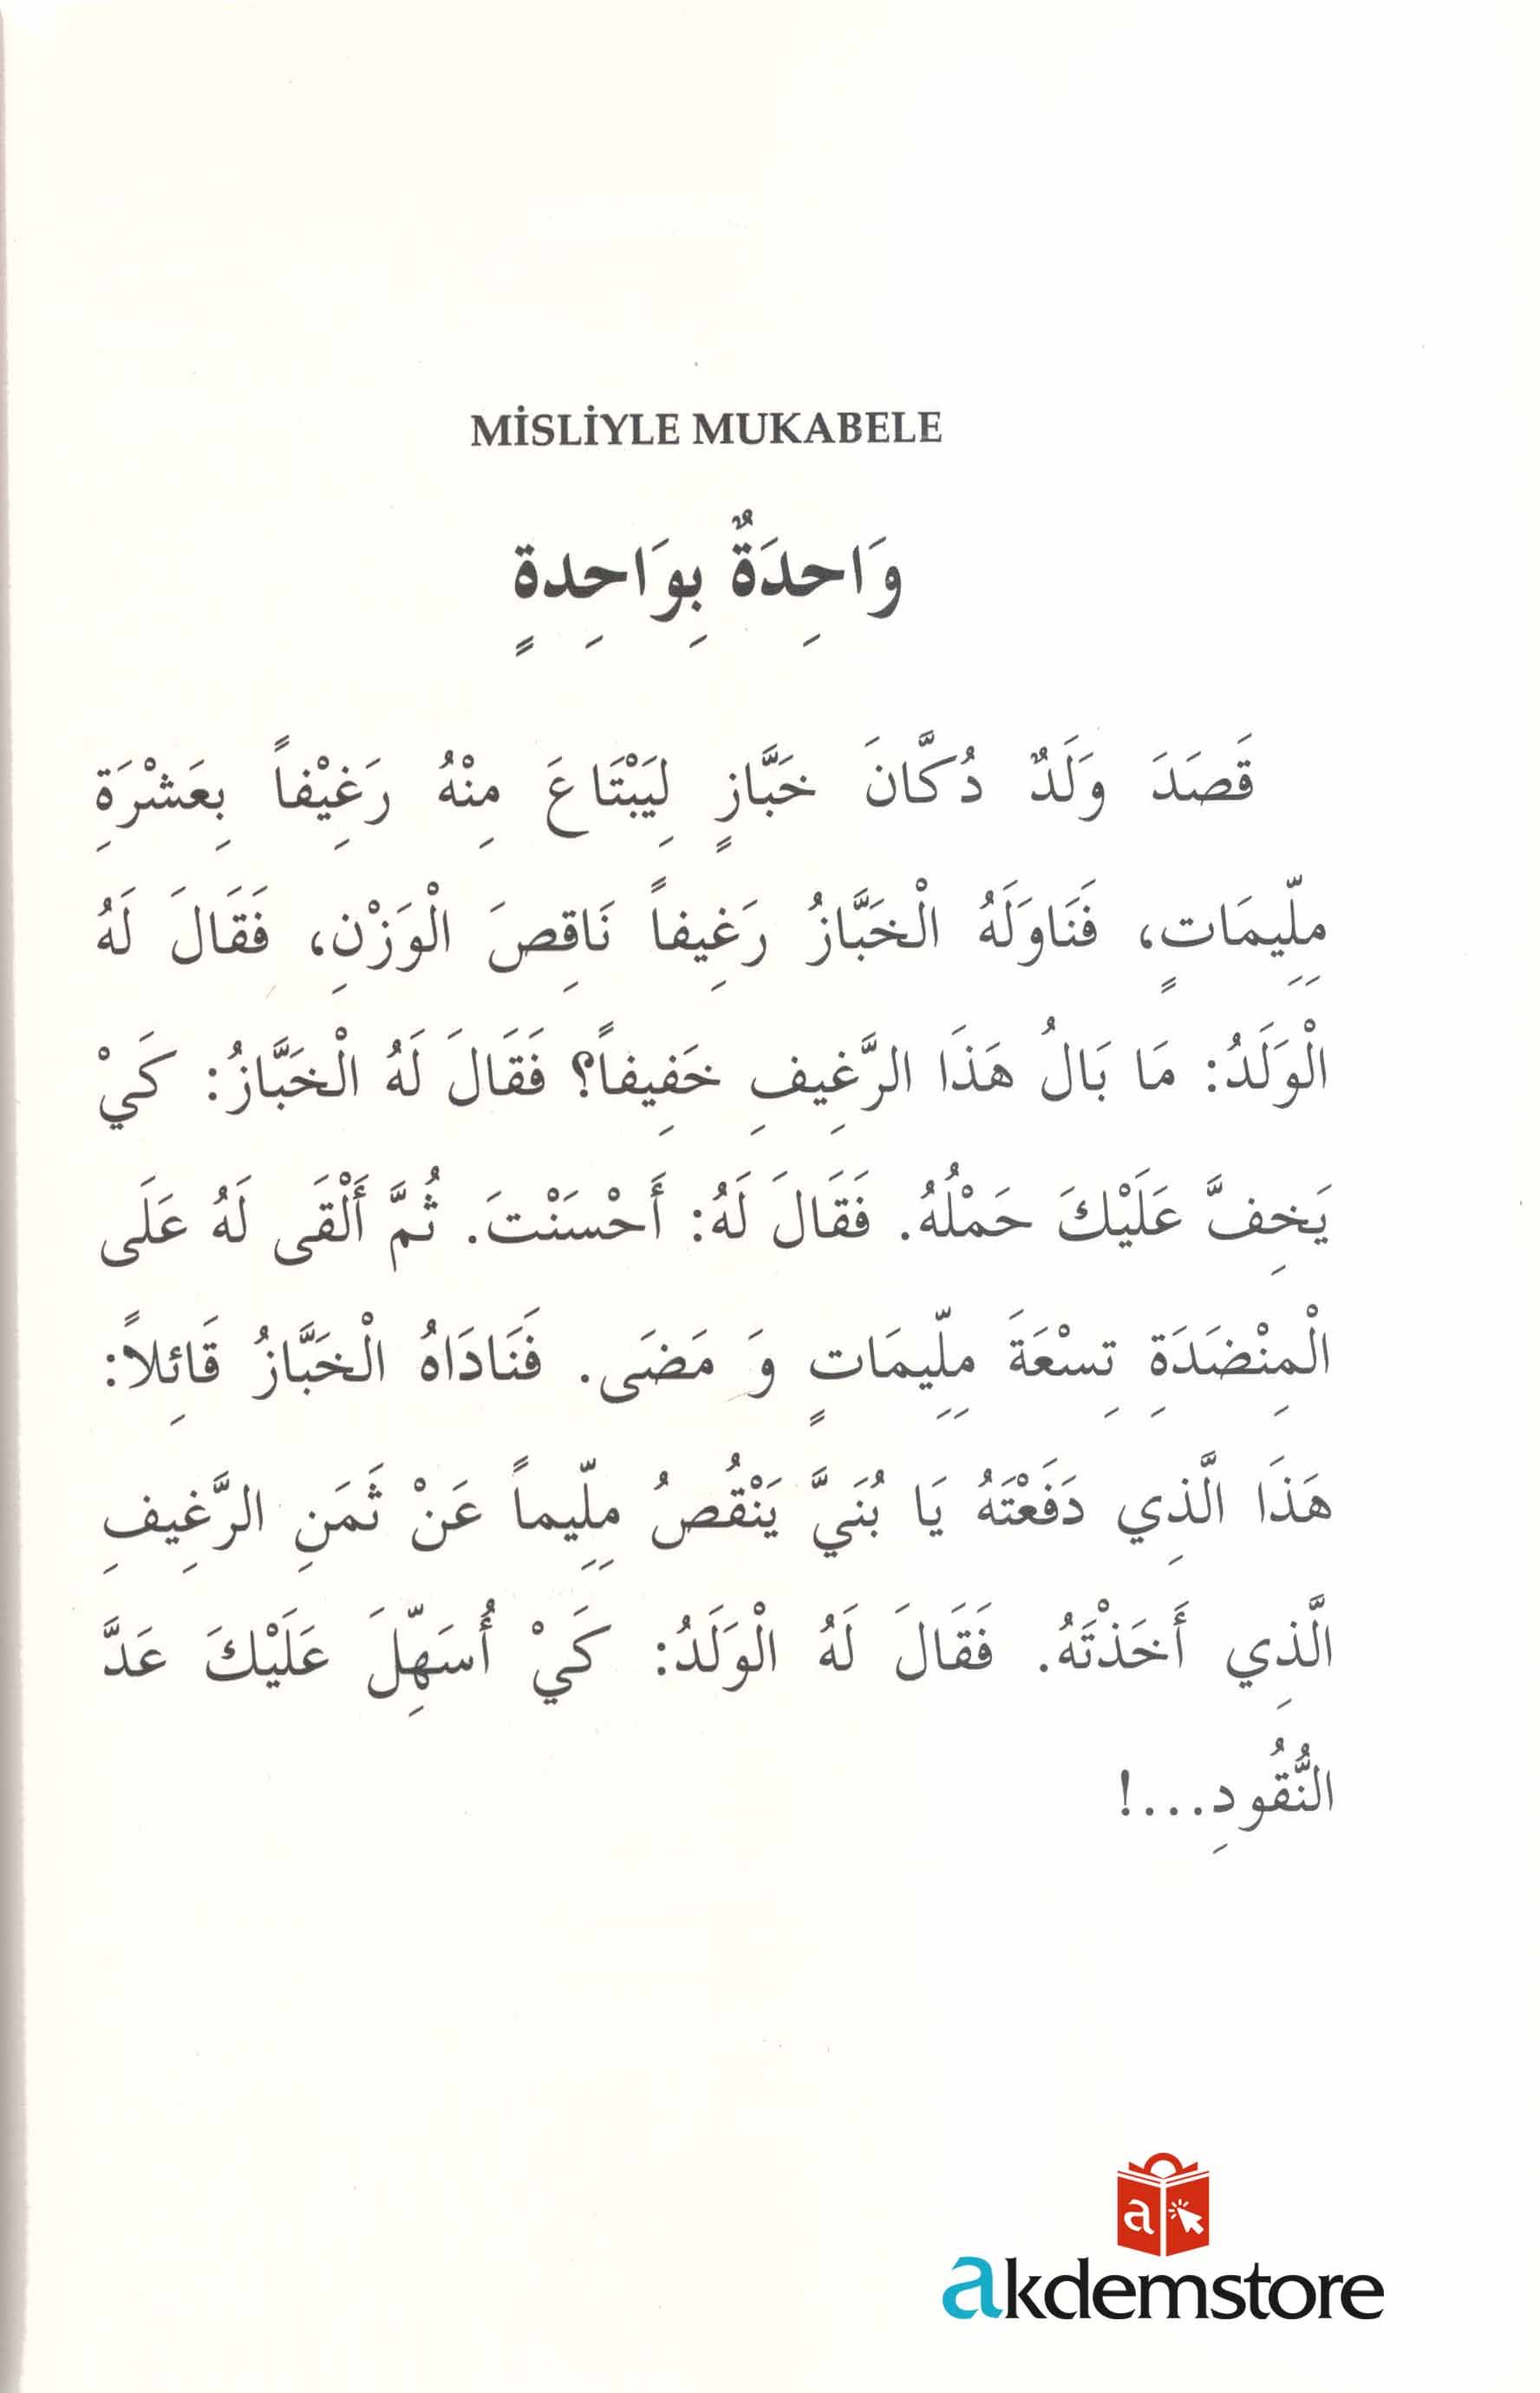 MİSLİYLE MUKABELE
وَاحِدَةٌ بِوَاحِدِةٍ
قَصَدَ وَلَدٌ دُكَّانَ خَبَّازٍ لِيَبْتَاعَ مِنْهُ رَغِيْفاً بِعَشْرَةِ
مِلِّيمَاتٍ، فَنَاوَلَهُ الْخَبَّازُ رَغِيفاً نَاقِصَ الْوَزْنِ، فَقَالَ لَهُ
الْوَلَدُ: مَا بَالُ هَذَا الرَّغِيفِ خَفِيفاً؟ فَقَالَ لَهُ الْخَبَّازُ: كَيْ
يَخِفَّ عَلَيْكَ حَمْلُهُ. فَقَالَ لَهُ: أَحْسَنْتَ. ثُمَّ أَلْقَى لَهُ عَلَى
الْمِنْضَدَةِ تِسْعَةَ مِلِّيمَاتٍ وَ مَضَى. فَنَادَاهُ الْخَبَّازُ قَائِلاً:
هَذَا الَّذِي دَفَعْتَهُ يَا بُنَيَّ يَنْقُصُ مِلِّيماً عَنْ ثَمَنِ الرَّغِيفِ
الَّذِي أَخَذْتَهُ. فَقَالَ لَهُ الْوَلَدُ: كَيْ أُسَهِّلَ عَلَيْكَ عَدَّ
النُّقُودِ...!
a
akdemstore